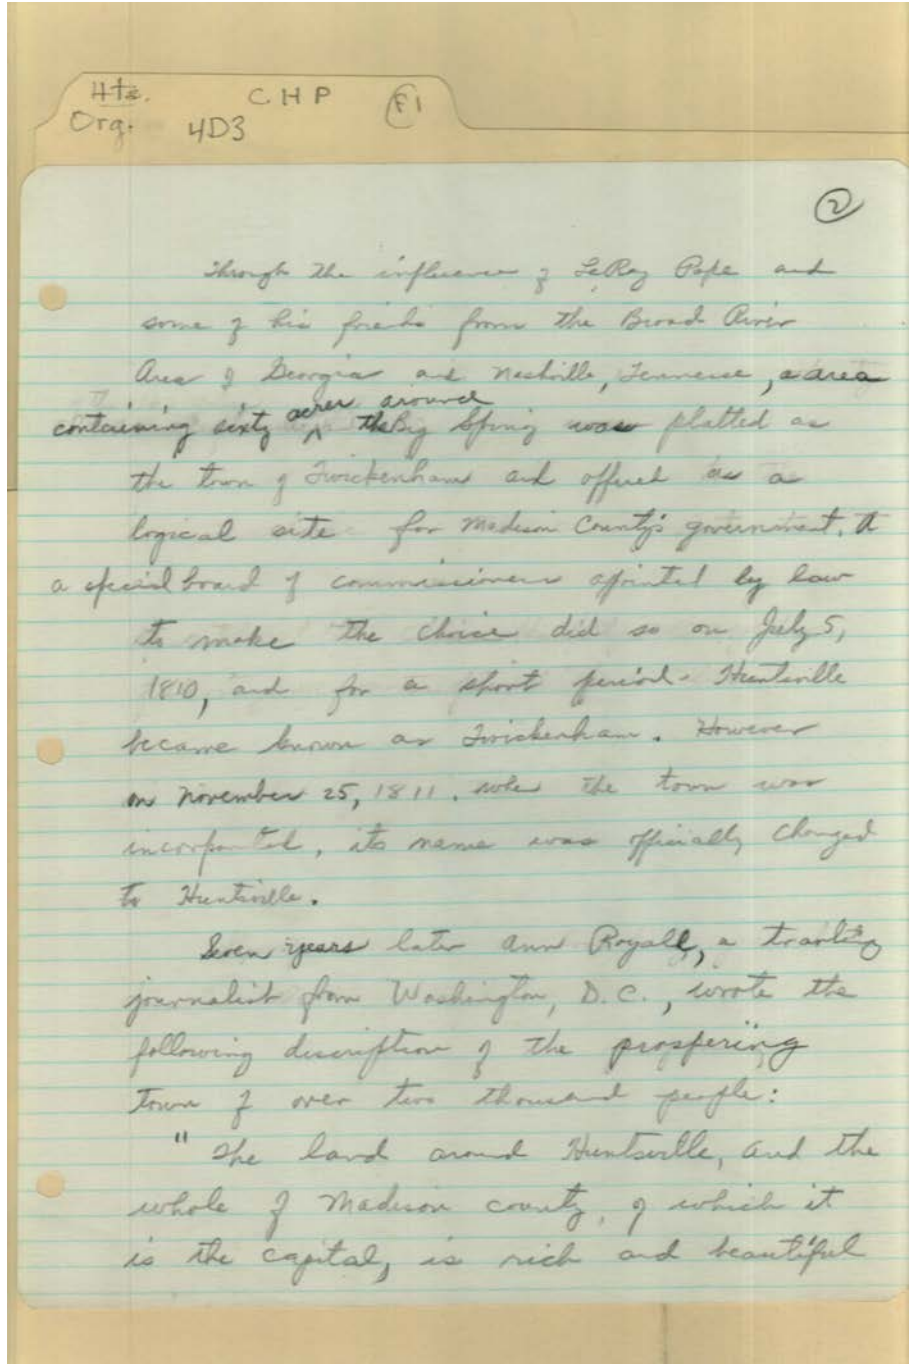 Hts. CHP F1
Org. 4D3
2
Through the influence of LeRoy Pope and
some of his friends from the Broad River
Area of Georgia and Nashville, Tennessee, a area
containing sixty acres around the Big Spring was platted as
the town of Twickenham and offered as a
logical site for Madison County's government.
a special board of commissioners apointed by law
to make the choice did so on July 5,
1810, and for a short period Huntsville
became known as Twickenham. However
on November 25, 1811, when the town was
incorporated, its name was officially changed
to Huntsville.
Seven years later Ann Royall, a traveling
journalist from Washington, D.C., wrote the
following discription of the prospering
town of over two thousand people:
"The land around Huntsville, and the
whole of Madison county, of which it
is the capital, is rich and beautiful